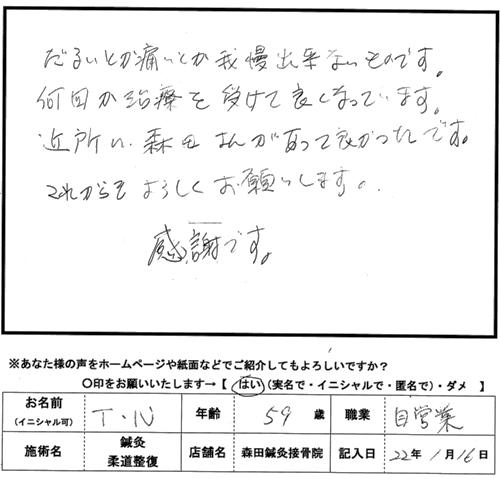 だるいとか痛いとか我慢出来ないものです。
何回か治療を受けて良くなっています。
近所に森田さんがあって良かったです。
これからもよろしくお願いします。
感謝です。
※あなた様の声をホームページや紙面などでご紹介してもよろしいですか?
〇印をお願いいたします→【 はい (実名で・イニシャルで・匿名で)・ダメ 】
お名前 (イニシャル可) T・N 年齢 59 歳 職業 自営業
施術名 鍼灸 柔道整復 店舗名 森田鍼灸接骨院 記入日 22年 1月16日